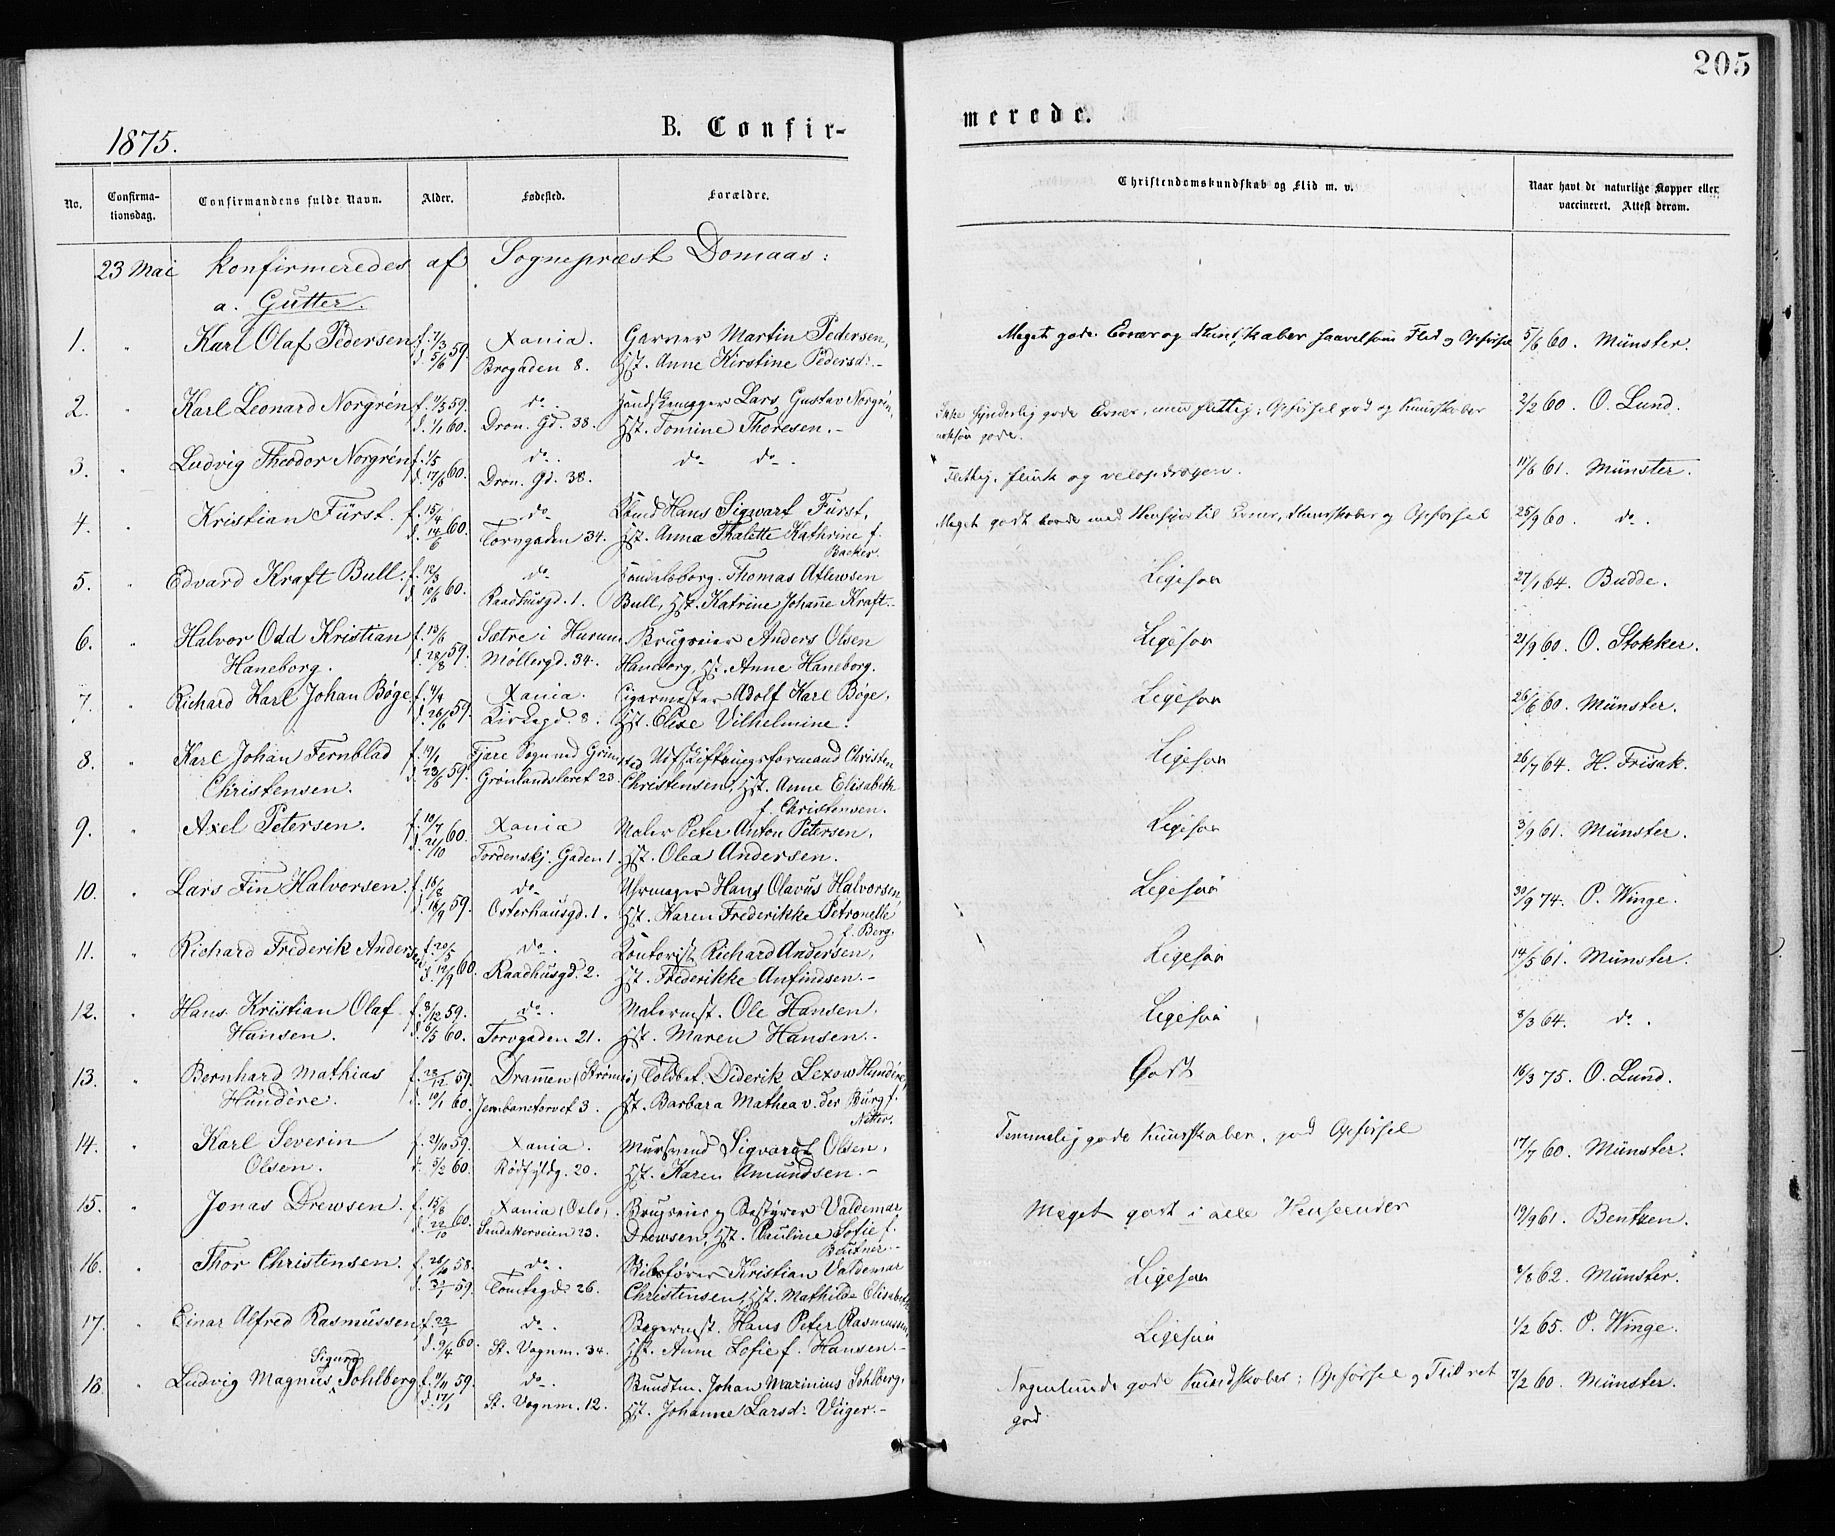 205
1875.
B. Confir-
merede.
No.
Confirma-
tionsdag.
Confirmandens fulde Navn.
Alder.
Fødested.
Forældre.
Christendomskundskab og Flid m. v.
Naar havt de naturlige Kopper eller
vaccineret. Attest derom.
23 Mai konfirmeredes af Sognepræst Domaas:
a. Gutter.
1. " Karl Olaf Pedersen f. 7/3 59. Xania. Garver Martin Pedersen, Meget gode Evner og Kundskaber saavelsom Flid og Opførsel 5/6 60. Münster.
d. 5/6 Brogaden 8. Hst. Anne Kirstine Pedersd:-
2. " Karl Leonard Norgrén f. 11/3 59. do. Handskemager Lars Gustav Norgrén, Ikke synderlig gode Evner, men flittig; Opførsel god og Kundskaber 2/2 60. O. Lund.
d. 1/1 60. Dron. Gd. 38. Hst. Tomine Thoresen.- nokså gode.
3. " Ludvig Theodor Norgrén f. 1/5 do. do do. Flittig, flink og velopdragen. 11/6 61. Münster.
d. 17/6 60. Dron. Gd. 38.
4. " Kristian Fürst. f. 15/4 60. do. Kbmd Hans Sigwart Fürst, Meget godt med Hensyn til Evner, Kundskaber og Opførsel 25/9 60. do.
d. 14/6 Torvgaden 34. Hst. Anna Thalette Kathrine f.
Backer.
5. " Edvard Kraft Bull. f. 12/3 60. do. Handelsborg. Thomas Atlewsen Ligesaa 27/1 64. Budde.
d. 10/6 Raadhusgd. 1. Bull, Hst. Katrine Johanne Kraft.-
6. " Halvor Odd Kristian f. 13/6 59. Sætre i Hurum Brugseier Anders Olsen Ligesaa 21/9 60. O. Stokker.
Haneborg. d. 28/8 Møllergd. 34. Haneborg, Hst. Anne Haneborg.
7. " Richard Karl Johan Bøge f. 4/4 59. Xania. Cigarmester Adolf Karl Bøge, Ligesaa 26/6 60. Münster.
d. 26/6 Kirkegd. 8. Hst. Elise Vilhelmine.
8. " Karl Johan Fernblad f. 19/1 59. Fjære Sogn ved Grim- Udskiftningsformand Christen Ligesaa 26/7 64. H. Frisak.
Christensen. d. 23/6 Grønlandsleret 23. sted Christensen, Hst. Anne Elisabeth
f. Christensen.
9. " Axel Petersen. f. 10/7 60. Xania Maler Peter Anton Petersen, Ligesaa 3/9 61. Münster.
d. 21/10 Tordenskj. Gaden 1. Hst. Olea Andersen.
10. " Lars Fin Halvorsen. f. 16/8 59. do. Uhrmager Hans Olavus Halvorsen, Ligesaa 30/9 74. P. Winge.
d. 18/9 Osterhausgd. 1. Hst. Karen Frederikke Petronelle
f. Berg.
11. " Richard Frederik Andersen f. 20/5 60. do. Kontorist Richard Andersen, Ligesaa 14/5 61. Münster.
d. 19/9 Raadhusgd. 2. Hst. Frederikke Anfindsen.-
12. " Hans Kristian Olaf f. 8/12 59. do. Malermst. Ole Hansen, Ligesaa 8/3 64. do.
Hansen. d. 6/5 60. Torvgaden 21. Hst. Maren Hansen.-
13. " Bernhard Mathias f. 23/12 59. Drammen (Strømsø) Toldbet. Diderik Lexow Hundére, Godt 16/3 75. O. Lund.
Hundére. d. 10/1 60. Jernbanetorvet 3. Hst. Barbara Mathea v. der Burg f.
Netter.
14. " Karl Severin f. 21/10 59. Xania Mursvend Sigvardt Olsen, Temmelig gode Kundskaber, god Opførsel 17/7 60. Münster.
Olsen. d. 5/2 60. Rødfyldg. 20. Hst. Karen Amundsen.-
15. " Jonas Drewsen. f. 15/8 60. Xania (Oslo). Brugseier og Bestyrer Valdemar Meget godt i alle Henseender 19/9 61. Bentzen.
d. 22/10 Sandakerveien 23. Drewsen, Hst. Pauline Sofie f.
Beutner.-
16. " Thor Christensen. f. 26/10 58. do. Kristian Valdemar Ligesaa 1/8 62. Münster.
d. 31/1 59. Tomtegd: 26. Christensen, Hst. Mathilde Elisabeth
17. " Einar Alfred Rasmussen f. 22/1 60. do. Bagermst. Hans Peter Rasmussen, Ligesaa 1/2 65. P. Winge.
d. 9/4 St. Vognm. 34. Hst. Anne Sofie f. Hansen.-
Sigurd
18. " Ludvig Magnus Sohlberg f. 9/11 59. do. Bundtm. Johan Marinius Sohlberg, Nogenlunde gode Kundskaber; Opførsel og Flid ret 7/2 60. Münster.
d. 17/1 St. Vognm. 12. Hst. Johanne Larsd: Viiger.- god.